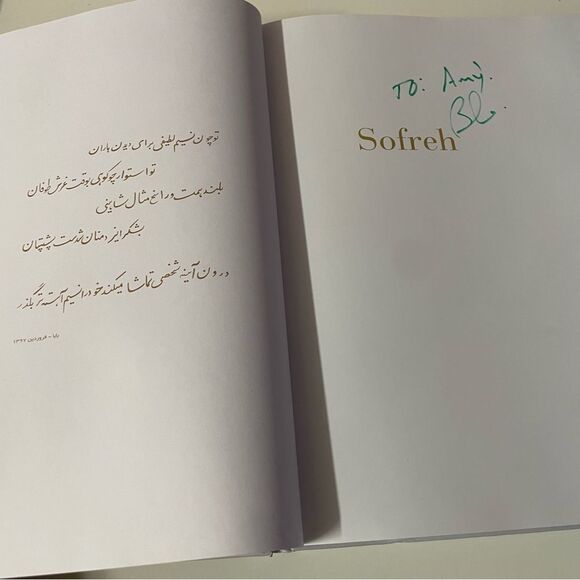 تو چون نسیم لطیفی برای دیدن باران
تو استوار چو کوهی بوقت غرش طوفان
بلند همت و راسخ مثال شاهینی
درون آینه شخصی تماشا میکند خود را نسیم آهسته تر بگذر
بابا - فروردین ۱۳۹۲
TO: Amy.
Sofreh